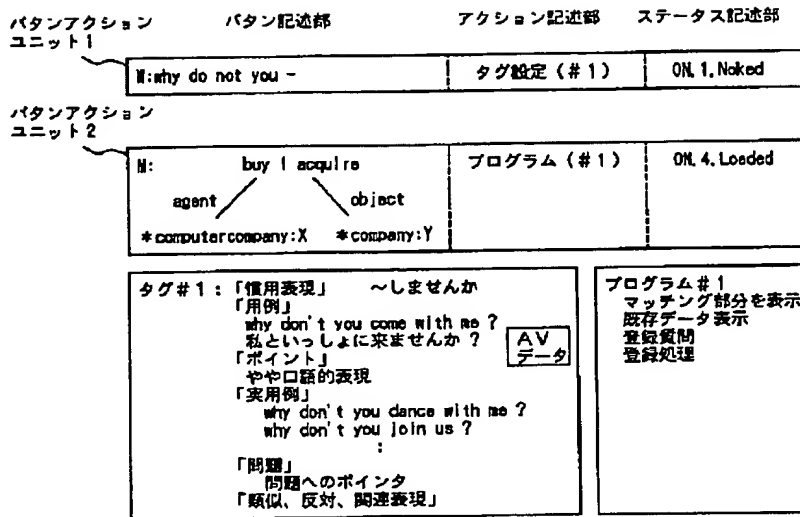 パタンアクション
ユニット1
パタン記述部 アクション記述部 ステータス記述部
N:why do not you ~ タグ設定(#1) ON,1,Noked
パタンアクション
ユニット2
N: buy | acquire プログラム(#1) ON,4,Loaded
agent object
*computercompany:X *company:Y
タグ#1:「慣用表現」 ～しませんか
「用例」
why don't you come with me ?
私といっしょに来ませんか ?
AV
データ
「ポイント」
やや口語的表現
「実用例」
why don't you dance with me ?
why don't you join us ?
:
「問題」
問題へのポインタ
「類似、反対、関連表現」
プログラム#1
マッチング部分を表示
既存データ表示
登録質問
登録処理